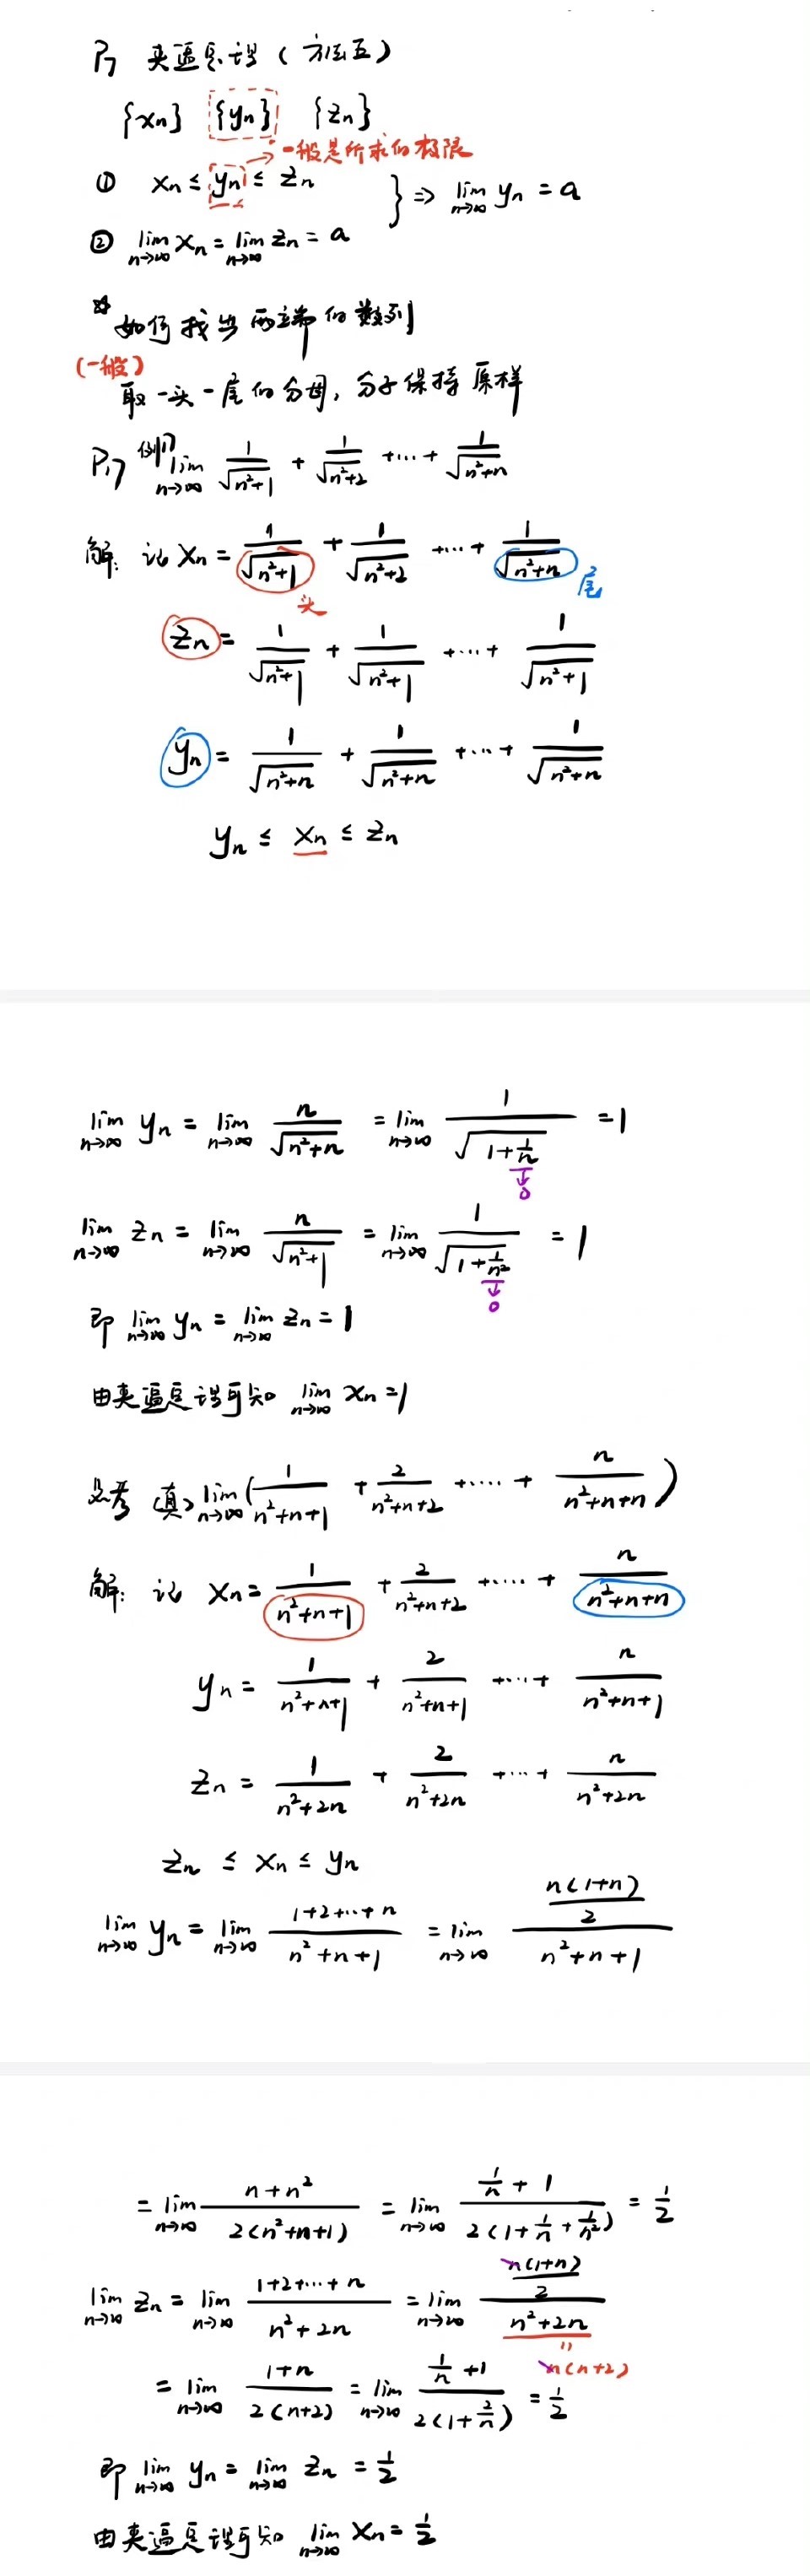 P₇ 夹逼定理（方法五）
{xₙ} {yₙ} {zₙ}
一般是所求的极限
① xₙ ≤ yₙ ≤ zₙ
② lim_{n→∞} xₙ = lim_{n→∞} zₙ = a } ⇒ lim_{n→∞} yₙ = a
☆ 如何找出两端的数列
(一般)
取一头一尾的分母，分子保持原样
P₁₇ 例17 lim_{n→∞} 1/√(n²+1) + 1/√(n²+2) + ⋯ + 1/√(n²+n)
解: 记 xₙ = 1/√(n²+1) + 1/√(n²+2) + ⋯ + 1/√(n²+n)
头 尾
zₙ = 1/√(n²+1) + 1/√(n²+1) + ⋯ + 1/√(n²+1)
yₙ = 1/√(n²+n) + 1/√(n²+n) + ⋯ + 1/√(n²+n)
yₙ ≤ xₙ ≤ zₙ
lim_{n→∞} yₙ = lim_{n→∞} n/√(n²+n) = lim_{n→∞} 1/√(1+1/n) = 1
↓
0
lim_{n→∞} zₙ = lim_{n→∞} n/√(n²+1) = lim_{n→∞} 1/√(1+1/n²) = 1
↓
0
即 lim_{n→∞} yₙ = lim_{n→∞} zₙ = 1
由夹逼定理可知 lim_{n→∞} xₙ = 1
必考（真）lim_{n→∞} (1/(n²+n+1) + 2/(n²+n+2) + ⋯ + n/(n²+n+n))
解: 记 xₙ = 1/(n²+n+1) + 2/(n²+n+2) + ⋯ + n/(n²+n+n)
yₙ = 1/(n²+n+1) + 2/(n²+n+1) + ⋯ + n/(n²+n+1)
zₙ = 1/(n²+2n) + 2/(n²+2n) + ⋯ + n/(n²+2n)
zₙ ≤ xₙ ≤ yₙ
lim_{n→∞} yₙ = lim_{n→∞} (1+2+⋯+n)/(n²+n+1) = lim_{n→∞} (n(1+n)/2)/(n²+n+1)
= lim_{n→∞} (n+n²)/(2(n²+n+1)) = lim_{n→∞} (1/n+1)/(2(1+1/n+1/n²)) = 1/2
lim_{n→∞} zₙ = lim_{n→∞} (1+2+⋯+n)/(n²+2n) = lim_{n→∞} (n(1+n)/2)/(n²+2n)
=
n(n+2)
= lim_{n→∞} (1+n)/(2(n+2)) = lim_{n→∞} (1/n+1)/(2(1+2/n)) = 1/2
即 lim_{n→∞} yₙ = lim_{n→∞} zₙ = 1/2
由夹逼定理可知 lim_{n→∞} xₙ = 1/2